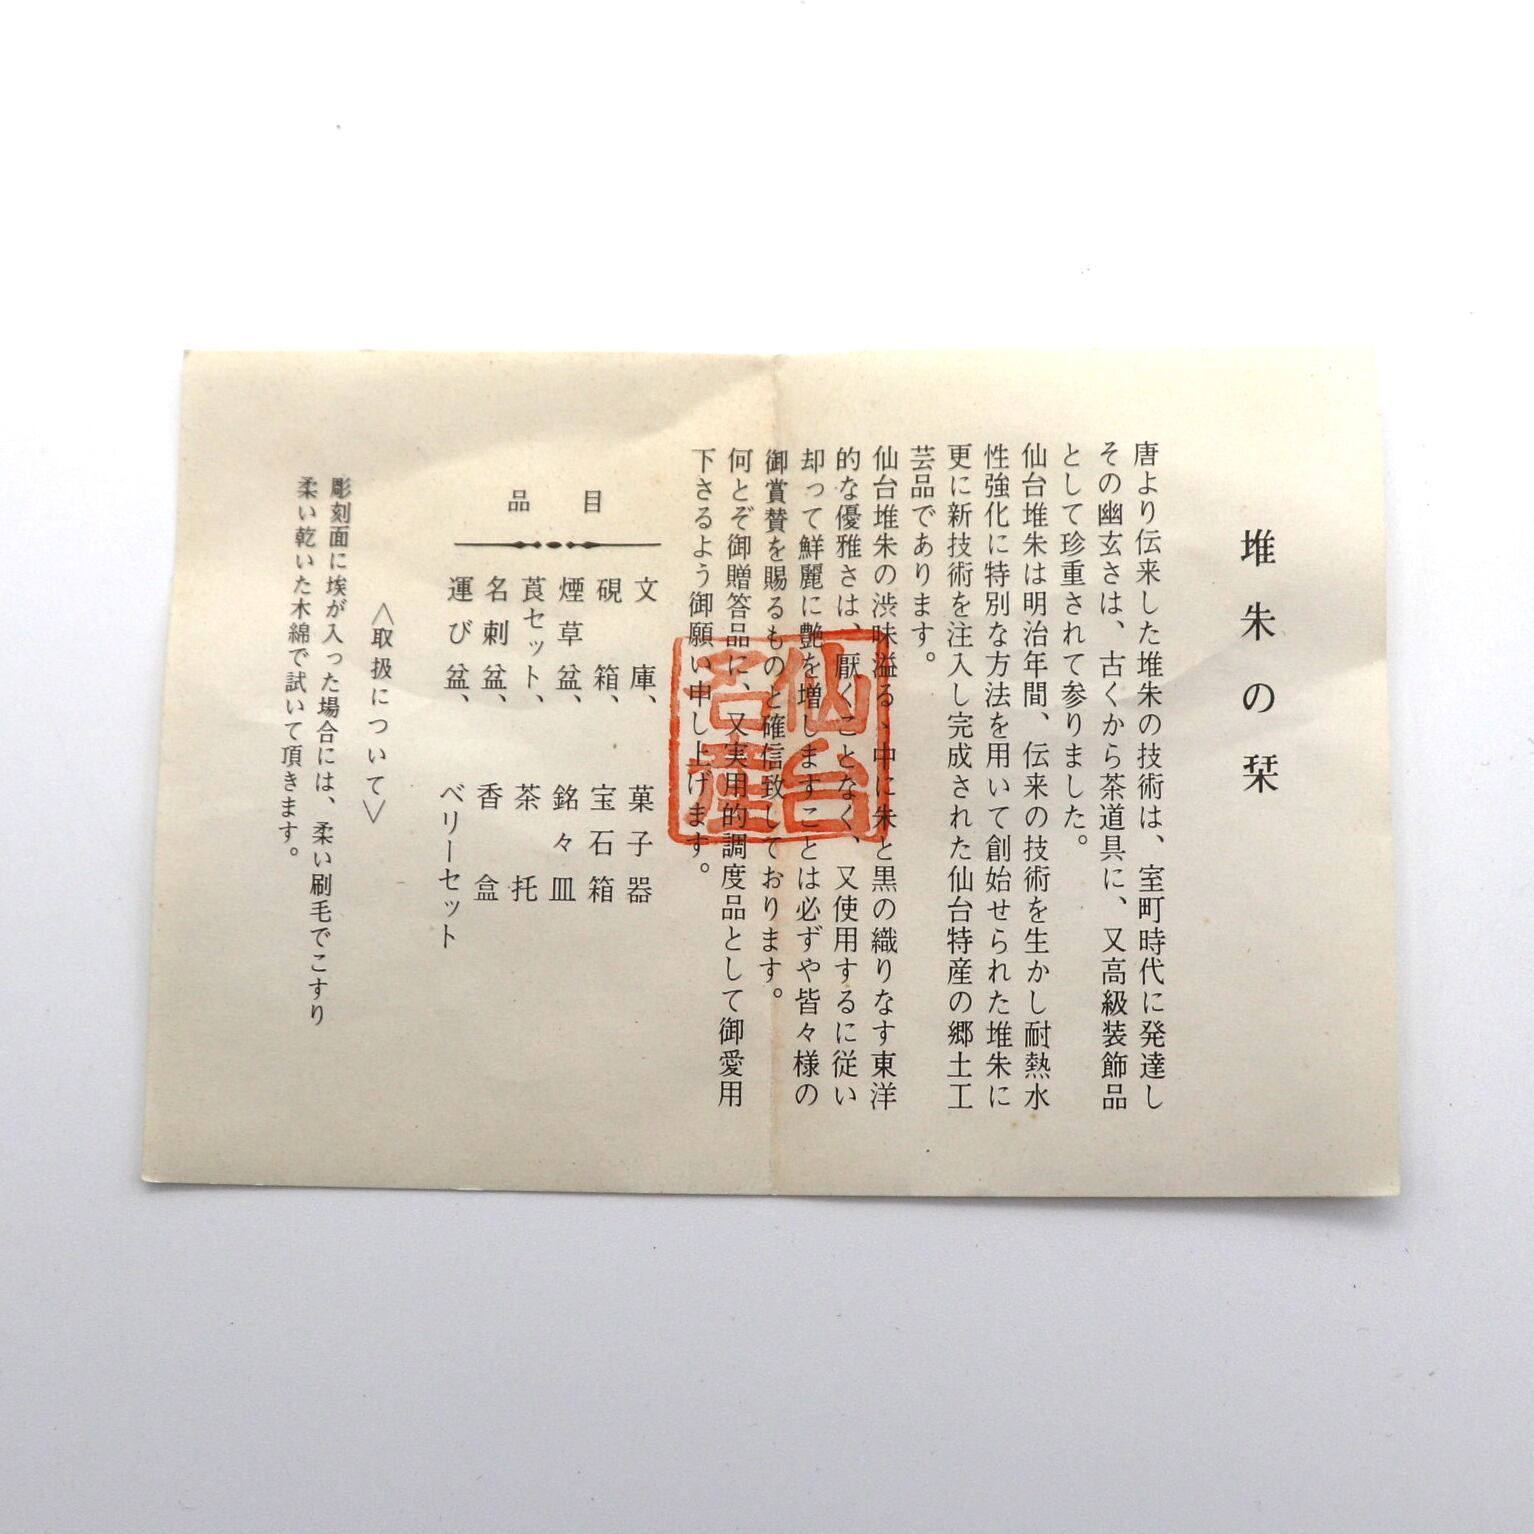 堆朱の栞
唐より伝来した堆朱の技術は、室町時代に発達し
その幽玄さは、古くから茶道具に、又高級装飾品
として珍重されて参りました。
仙台堆朱は明治年間、伝来の技術を生かし耐熱水
性強化に特別な方法を用いて創始せられた堆朱に
更に新技術を注入し完成された仙台特産の郷土工
芸品であります。
仙台堆朱の渋味溢る、中に朱と黒の織りなす東洋
的な優雅さは、厭くことなく、又使用するに従い
却って鮮麗に艶を増しますことは必ずや皆々様の
御賞賛を賜るものと確信致しております。
何とぞ御贈答品に、又実用的調度品として御愛用
下さるよう御願い申し上げます。
仙台
名産
品目
文庫、菓子器
硯箱、宝石箱
煙草盆、銘々皿
莨セット、茶托
名刺盆、香盒
運び盆、ベリーセット
〈取扱について〉
彫刻面に埃が入った場合には、柔い刷毛でこすり
柔い乾いた木綿で試いて頂きます。